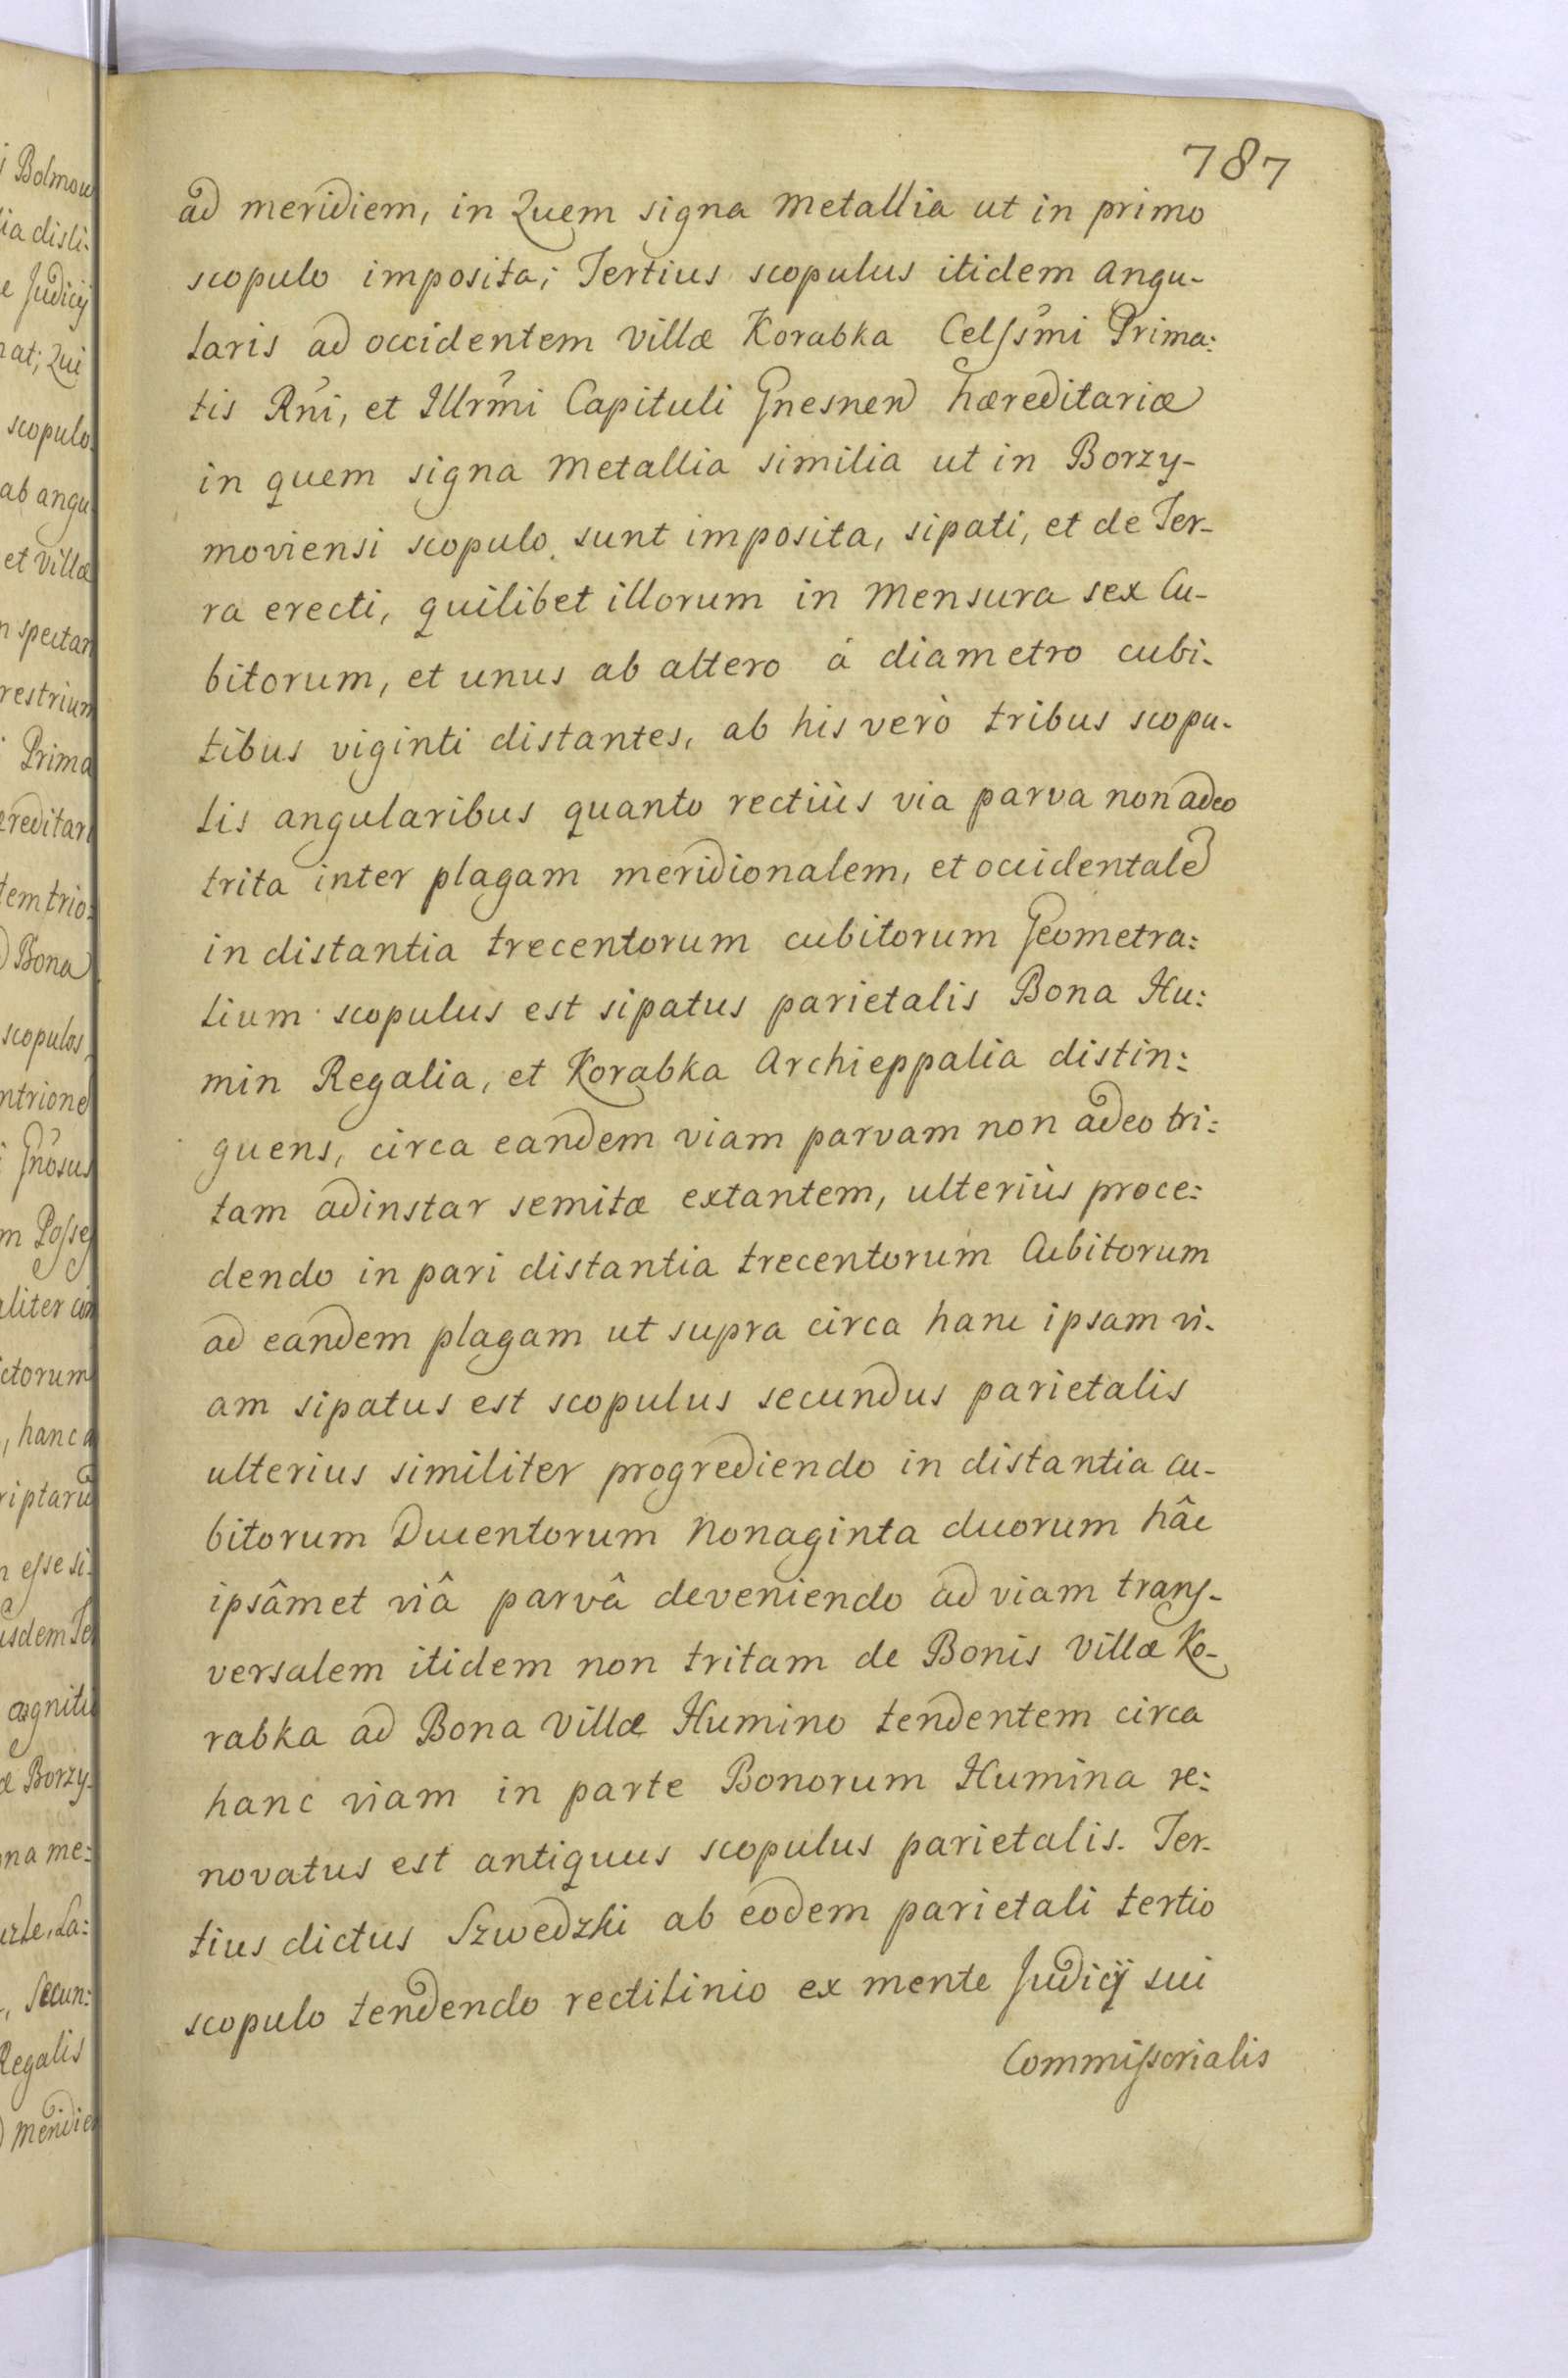 787
ad meridiem, in Quem signa Metallia ut in primo
scopulo imposita; Tertius scopulus itidem angu-
laris ad occidentem Villæ Korabka Celssmi Prima:
tis Rni, et Illrmi Capituli Gnesnen hæreditariæ
in quem signa Metallia similia ut in Borzy-
moviensi scopulo sunt imposita, sipati, et de Ter-
ra erecti, quilibet illorum in Mensura sex Cu-
bitorum, et unus ab altero á diametro cubi-
tibus viginti distantes, ab his verò tribus scopu-
lis angularibus quanto rectiùs via parva non adeo
trita inter plagam meridionalem, et occidentale
in distantia trecentorum cubitorum Geometra:
lium scopulus est sipatus parietalis Bona Hu:
min Regalia, et Korabka Archieppalia distin:
guens, circa eandem viam parvam non adeo tri:
tam adinstar semitæ extantem, ulteriùs proce:
dendo in pari distantia trecentorum Cubitorum
ad eandem plagam ut supra circa hanc ipsam vi-
am sipatus est scopulus secundus parietalis
ulterius similiter progrediendo in distantia cu-
bitorum Ducentorum Nonaginta duorum hâc
ipsâmet viâ parvâ deveniendo ad viam trans-
versalem itidem non tritam de Bonis Villæ Ko-
rabka ad Bona Villæ Humino tendentem circa
hanc viam in parte Bonorum Humina re:
novatus est antiquus scopulus parietalis. Ter-
tius dictus Szwedzki ab eodem parietali tertio
scopulo tendendo rectilinio ex mente Judicij sui
Commissorialis